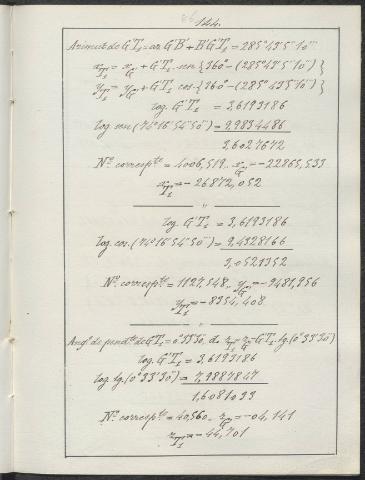 144.
Azimut de G'T₁ = az. G'B' + B'G'T₁ = 285°43'5"10'''
x_T₁ = x_G' + G'T₁ · sen {360° - (285°43'5"10''')}
y_T₁ = y_G' + G'T₁ cos {360° - (285°43'5"10''')}
log. G'T₁ = 3,6193186
log sen (74°16'54"50''') = 9,9834486
3,6027672
Nº correspte = 4006,519.. x_G' = -22865,533
x_T₁ = -26872,052
"
log. G'T₁ = 3,6193186
log cos. (74°16'54"50''') = 9,4328166
3,0521352
Nº correspte = 1127,548.. y_G' = -9481,956
y_T₁ = -8354,408
"
Angº de pendte de G'T₁ = 0°33'30", de z_T₁ = z_G' - G'T₁. tg. (0°33'30")
log. G'T₁ = 3,6193186
log. tg. (0°33'30") = 7,9887847
1,6081033
Nº correspte = 40,560.. z_G' = -04,141
z_T₁ = -44,701